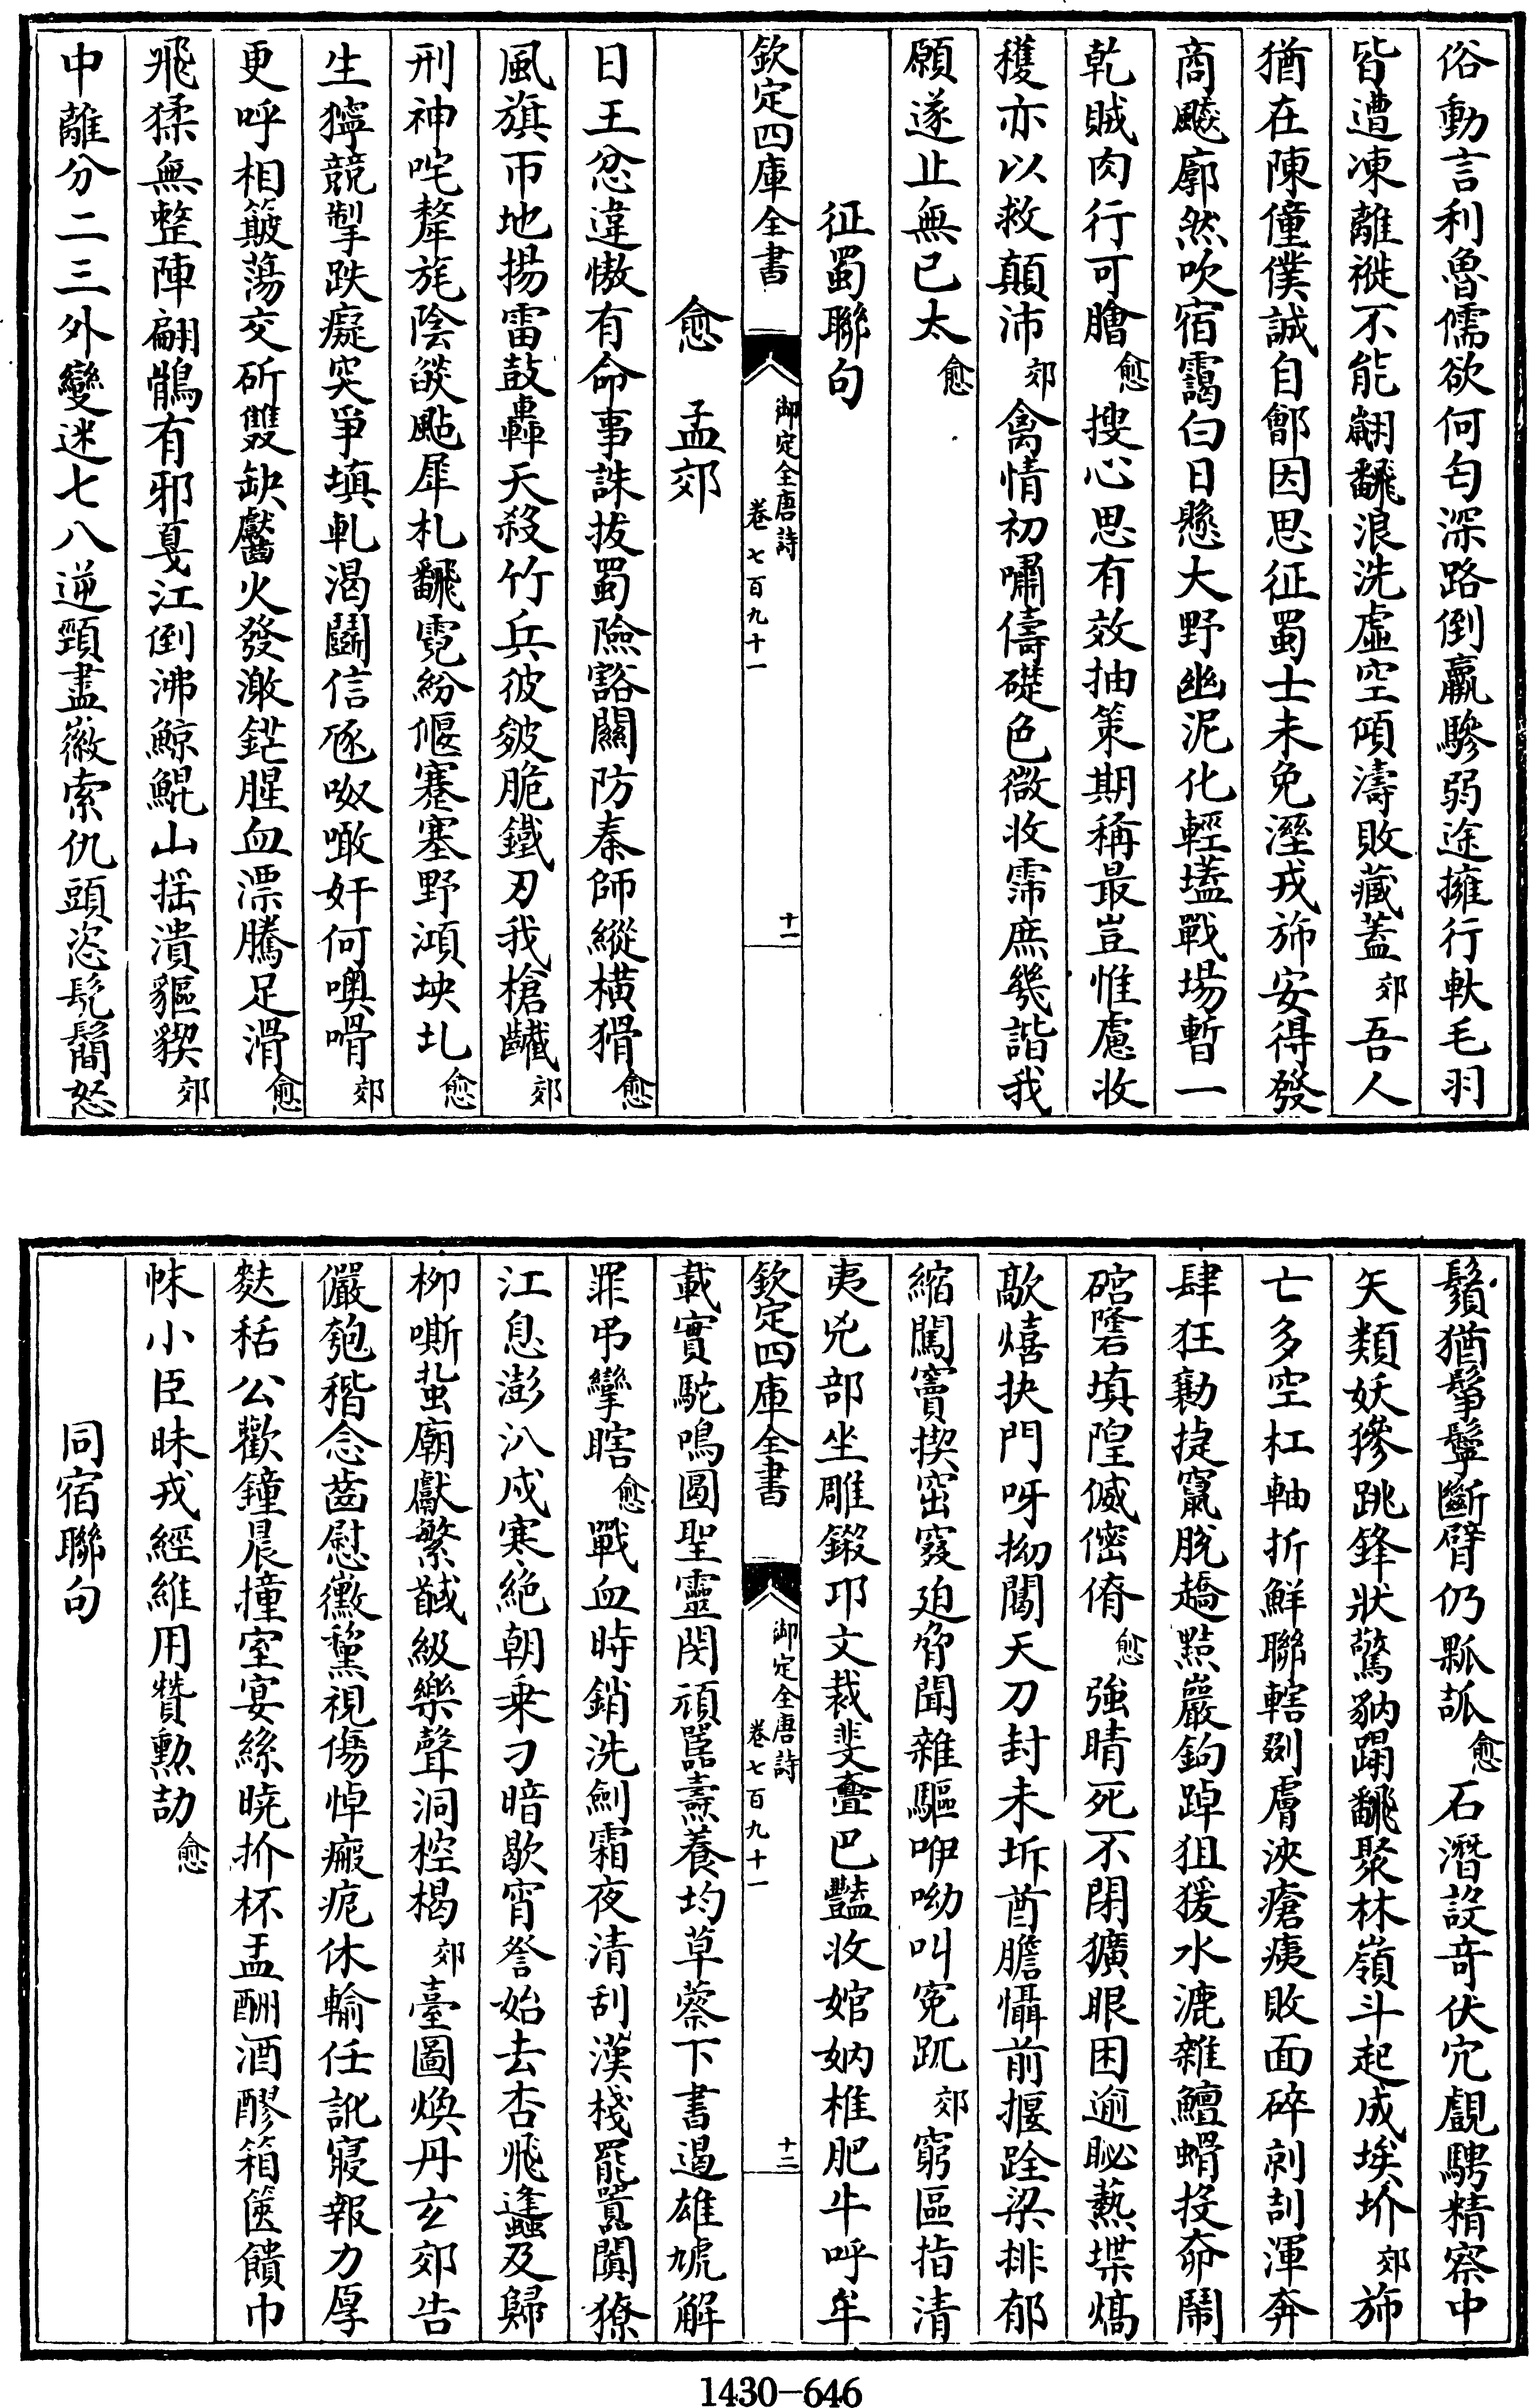 俗動言利魯儒欲何匄深路倒羸驂弱途擁行軑毛羽
皆遭凍離褷不能翽翻浪洗虛空傾濤敗藏蓋郊吾人
猶在陳僮僕誠自鄶因思征蜀士未免溼戎斾安得發
商飇廓然吹宿靄白日懸大野幽泥化輕壒戰場暫一
乾賊肉行可膾愈搜心思有效抽策期稱最豈惟慮收
穫亦以救顛沛郊禽情初嘯儔礎色微收霈庶幾諧我
願遂止無已太愈
征蜀聯句
欽定四庫全書 御定全唐詩 卷七百九十一 十一
愈 孟郊
日王忿違慠有命事誅拔蜀險豁關防秦師縱橫猾愈
風旗帀地揚雷鼓轟天殺竹兵彼皴脆鐵刃我槍䶪郊
刑神咤氂旄陰燄颭犀札翻霓紛偃蹇塞野澒坱圠愈
生獰競掣跌癡突爭填軋渴鬬信豗呶噉奸何噢喟郊
更呼相簸蕩交斫雙缺齾火發激鋩腥血漂騰足滑愈
飛猱無整陣翩鶻有邪戛江倒沸鯨鯤山搖潰貙猰郊
中離分二三外變迷七八逆頸盡徽索仇頭恣髡鬜怒
鬚猶鬇鬡斷臂仍𤬏㼎愈石潛設奇伏穴覷騁精察中
矢類妖㺑跳鋒狀驚豽蹋翻聚林嶺斗起成埃圿郊斾
亡多空杠軸折鮮聯轄剟膚浹瘡痍敗面碎剠刮渾奔
肆狂勷捷竄脫趫黠巖鉤踔狙猨水漉雜鱣螖投奅鬧
䃔㟞填隍傶㑮傄愈強睛死不閉獷眼困逾䀣爇堞熇
歊熺抉門呀拗閫天刀封未坼酋膽懾前揠跧梁排郁
縮闖竇揳窋窡迫脅聞雜驅咿呦叫冤趴郊窮區指清
夷兇部坐雕鎩邛文裁斐亹巴豔收婠妠椎肥牛呼牟
欽定四庫全書 御定全唐詩 卷七百九十一 十二
載實駝鳴圔聖靈閔頑嚚燾養均草蔡下書遏雄虓解
罪弔攣瞎愈戰血時銷洗劍霜夜清刮漢棧罷囂闐獠
江息澎汃戍寒絕朝乘刁暗歇宵詧始去杏飛蠭及歸
柳嘶蚻廟獻繁馘級樂聲洞椌楬郊臺圖煥丹玄郊告
儼匏稭念齒慰黴黧視傷悼瘢痆休輸任訛寢報力厚
麩秳公歡鐘晨撞室宴絲曉扴杯盂酬酒醪箱篋饋巾
帓小臣昧戎經維用贊勲劼愈
同宿聯句
1430-646